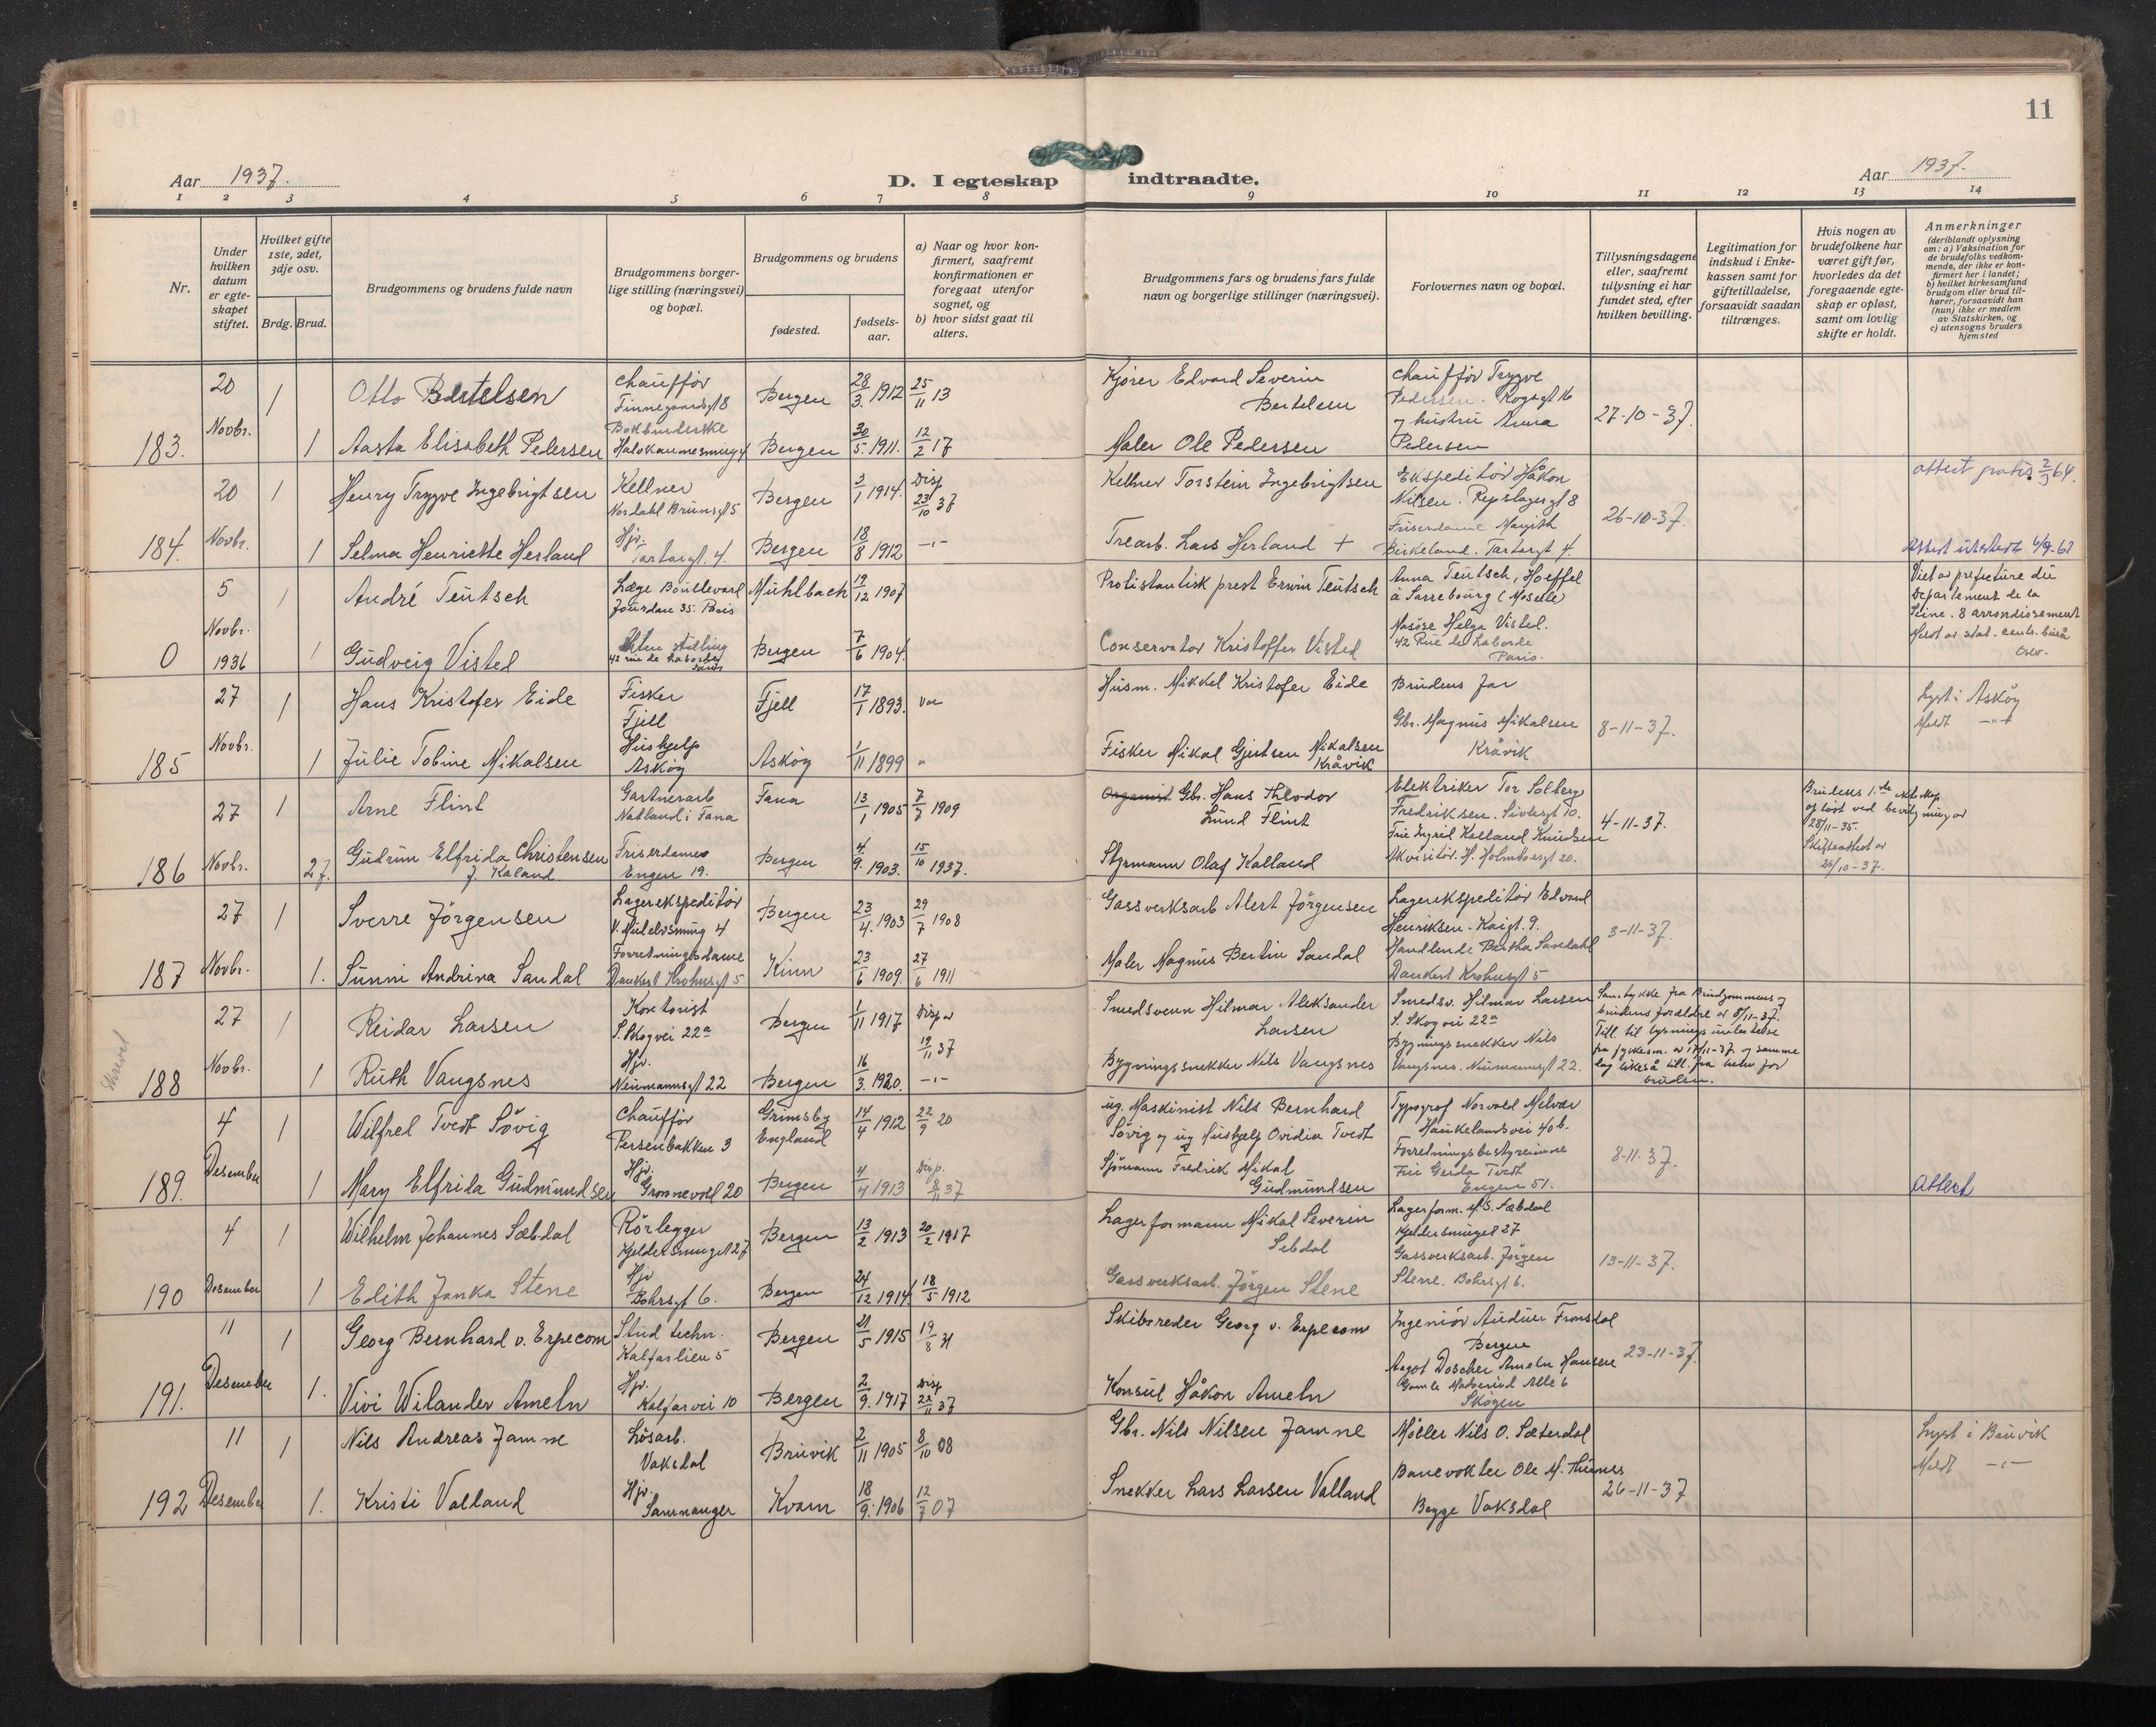 11
Aar 1937.
D. I egteskap indtraadte.
Aar 1937.
1 2 3 4 5 6 7 8 9 10 11 12 13 14
Nr.
Under hvilken datum er egteskapet stiftet.
Hvilket gifte 1ste, 2det, 3dje osv.
Brdg. Brud.
Brudgommens og brudens fulde navn
Brudgommens borgerlige stilling (næringsvei) og bopæl.
Brudgommens og brudens
fødested.
fødselsaar.
a) Naar og hvor konfirmert, saafremt konfirmationen er foregaat utenfor sognet, og
b) hvor sidst gaat til alters.
Brudgommens fars og brudens fars fulde navn og borgerlige stillinger (næringsvei).
Forlovernes navn og bopæl.
Tillysningsdagene eller, saafremt tillysning ei har fundet sted, efter hvilken bevilling.
Legitimation for indskud i Enkekassen samt for giftetilladelse, forsaavidt saadan tiltrænges.
Hvis nogen av brudefolkene har været gift før, hvorledes da det foregaaende egteskap er opløst, samt om lovlig skifte er holdt.
Anmerkninger
(deriblandt oplysning om: a) Vaksination for de brudefolks vedkommende, der ikke er konfirmert her i landet; b) hvilket kirkesamfund brudgom eller brud tilhører, forsaavidt han (hun) ikke er medlem av Statskirken, og c) utensogns bruders hjemsted
20 1 Otto Bertelsen Chauffør Finnegaardsgt 8 Bergen 28/3. 1912 25/11 13 Kjører Edvard Severin Bertelsen Chauffør Trygve Pedersen. Rogagt 16
183. Novbr. 1 Aasta Elisabeth Pedersen Bokbinderske Bergen 30/5. 1911. 12/2 17 Maler Ole Pedersen og hustru Anna Pedersen 27-10-37.
20 1 Henry Trygve Ingebrigtsen Kellner Nordahl Brunsgt 5 Bergen 3/1 1914. Disp 23/10 37 Kellner Torstein Ingebrigtsen Ekspeditør Håkon Nilsen. Repslagergt 8 attest gratis
184. Novbr. 1 Selma Henriette Herland Hjv. Tartargt. 4. Bergen 18/8 1912 -"- Trearb. Lars Herland + Frisørdame Margith Birkeland. Tartargt 4. 26-10-37. Attest utstedt
5 1 André Teutsch Læge Boullevard Jourdan 35. Paris Mühlbach 19/12 1907 Protistantisk prest Erwin Teutsch Anna Teutsch, Hoeffel à Sarrebourg (Moselle) Viet av prefecture du Departement de la Seine. 8 arrondissement
0 Novbr. 1936 1 Gudveig Visted Uten stilling 42 rue de Laborde Paris Bergen 7/6 1904. Conservator Kristoffer Visted Masøse Helga Visted. 42 Rue de Laborde Paris. Meldt av stat. centr. burå Oslo.
27 1 Hans Kristofer Eide Fisker Fjell Fjell 17/1 1893. Husm. Mikkel Kristofer Eide Brudens far Lyst i Askøy
185 Novbr. 1 Julie Tobine Mikalsen Hushjelp Askøy Askøy 1/11 1899 " Fisker Mikal Gjertsen Mikalsen Kråvik Gbr. Magnus Mikalsen Kråvik 8-11-37. Meldt -"-
27 1 Arne Flint Gartnerarb Natland i Fana Fana 13/1 1905 1909 Organist Gbr. Hans Theodor Lund Flint Elektriker Tor Solberg Fredriksen. Sivlesgt 10. Brudens 1.ste ekteskap opløst ved bevilgning av 28/11-35.
186 Novbr. 27. Gudrun Elfrida Christensen f. Kaland Friserdame Engen 19. Bergen 4/9. 1903. 15/10 1937. Styrmann Olaf Kalland Fru Ingrid Kalland Knudsen Akvisitør. H. Holmboesgt 20. 4-11-37. Skifteattest av 26/10-37.
27 1 Sverre Jörgensen Lagerekspeditör 4 Bergen 23/4. 1903 29/7 1908 Gassverksarb Alert Jörgensen Lagerekspeditör Edvard Henriksen - Kaigt. 9.
187 Novbr. 1. Sunni Andrina Sandal Forretningsdame Dankert Krohnsgt 5 Kinn 23/6 1909. 27/6 1911 Maler Magnus Bertin Sandal Handlende Bertha Sandahl Dankert Krohnsgt 5 3-11-37.
27 1 Reidar Larsen Kontorist S. Skogvei 22a Bergen 1/11 1917 Disp av 19/11 37 Smedsvenn Hilmar Aleksander Larsen Smedsv. Hilmar Larsen S. Skogvei 22a Samtykke fra Brudgommens og brudens foreldre av 8/11-37.
Skrevet 188 Novbr. 1 Ruth Vangsnes Hjv. Neumannsgt 22 Bergen 16/3. 1920. -"- Bygningssnekker Nils Vangsnes Bygningssnekker Nils Vangsnes. Neumannsgt 22. Till. til lysnings unlatelse fra fylkesm. av 17/11-37. og samme dag likeså till. fra lov for bruden.
4 1 Wilfrel Tvedt Sövig Chauffør Persenbakken 3 Grimsby England 14/4 1912 22/9 20 ug. Maskinist Nils Bernhard Sövig og ug Hushjelp Ovidia Tvedt Typograf Norvald Melvær Haukelandsvei 40b.
189. Desember 1 Mary Elfrida Gudmundsen Hjv. Grønnevold 20 Bergen 4/4 1913 Disp. 8/11 37 Sjømann Fredrik Mikal Gudmundsen Forretningsbestyrerinne Fru Gerda Tvedt Engen 51. 8-11-37. Attest
4 1 Wilhelm Johannes Sæbdal Rörlegger Kjeldersmuget 27 Bergen 13/2 1913 20/2 1917 Lagerformann Mikal Severin Sebdal Lagerform. M.S. Sæbdal Kjeldersmuget 27
190 Desember 1 Edith Janka Stene Hjv Bohrsgt 6. Bergen 24/12 1914 18/5 1912 Gassverksarb. Jörgen Stene Gassverksarb. Jörgen Stene. Bohrsgt 6. 13-11-37.
11 1 Georg Bernhard v. Erpecom Stud techn. Kalfarlien 5 Bergen 21/5 1915 19/8 31 Skibsreder Georg v. Erpecom Ingeniör Audun Fronsdal Bergen
191. Desember 1. Vivi Wilander Ameln Hjv. Kalfarvei 10 Bergen 2/9. 1917 Disp 22/11 37 Konsul Håkon Ameln Aagot Doscher Ameln Hansen Gamle Madserud Alle 6 Skøyen 23-11-37.
11 1 Nils Andreas Jamne Løsarb. Vaksdal Bruvik 2/11 1905 8/10 08 Gbr. Nils Nilsen Jamne Møller Nils O. Sæterdal Lyst i Bruvik
192 Desember 1. Kristi Valland Hjv. Samnanger Kvam 18/9. 1906 12/7 07 Snekker Lars Larsen Valland Banevokter Ole M. Begge Vaksdal 26-11-37 Meldt -"-